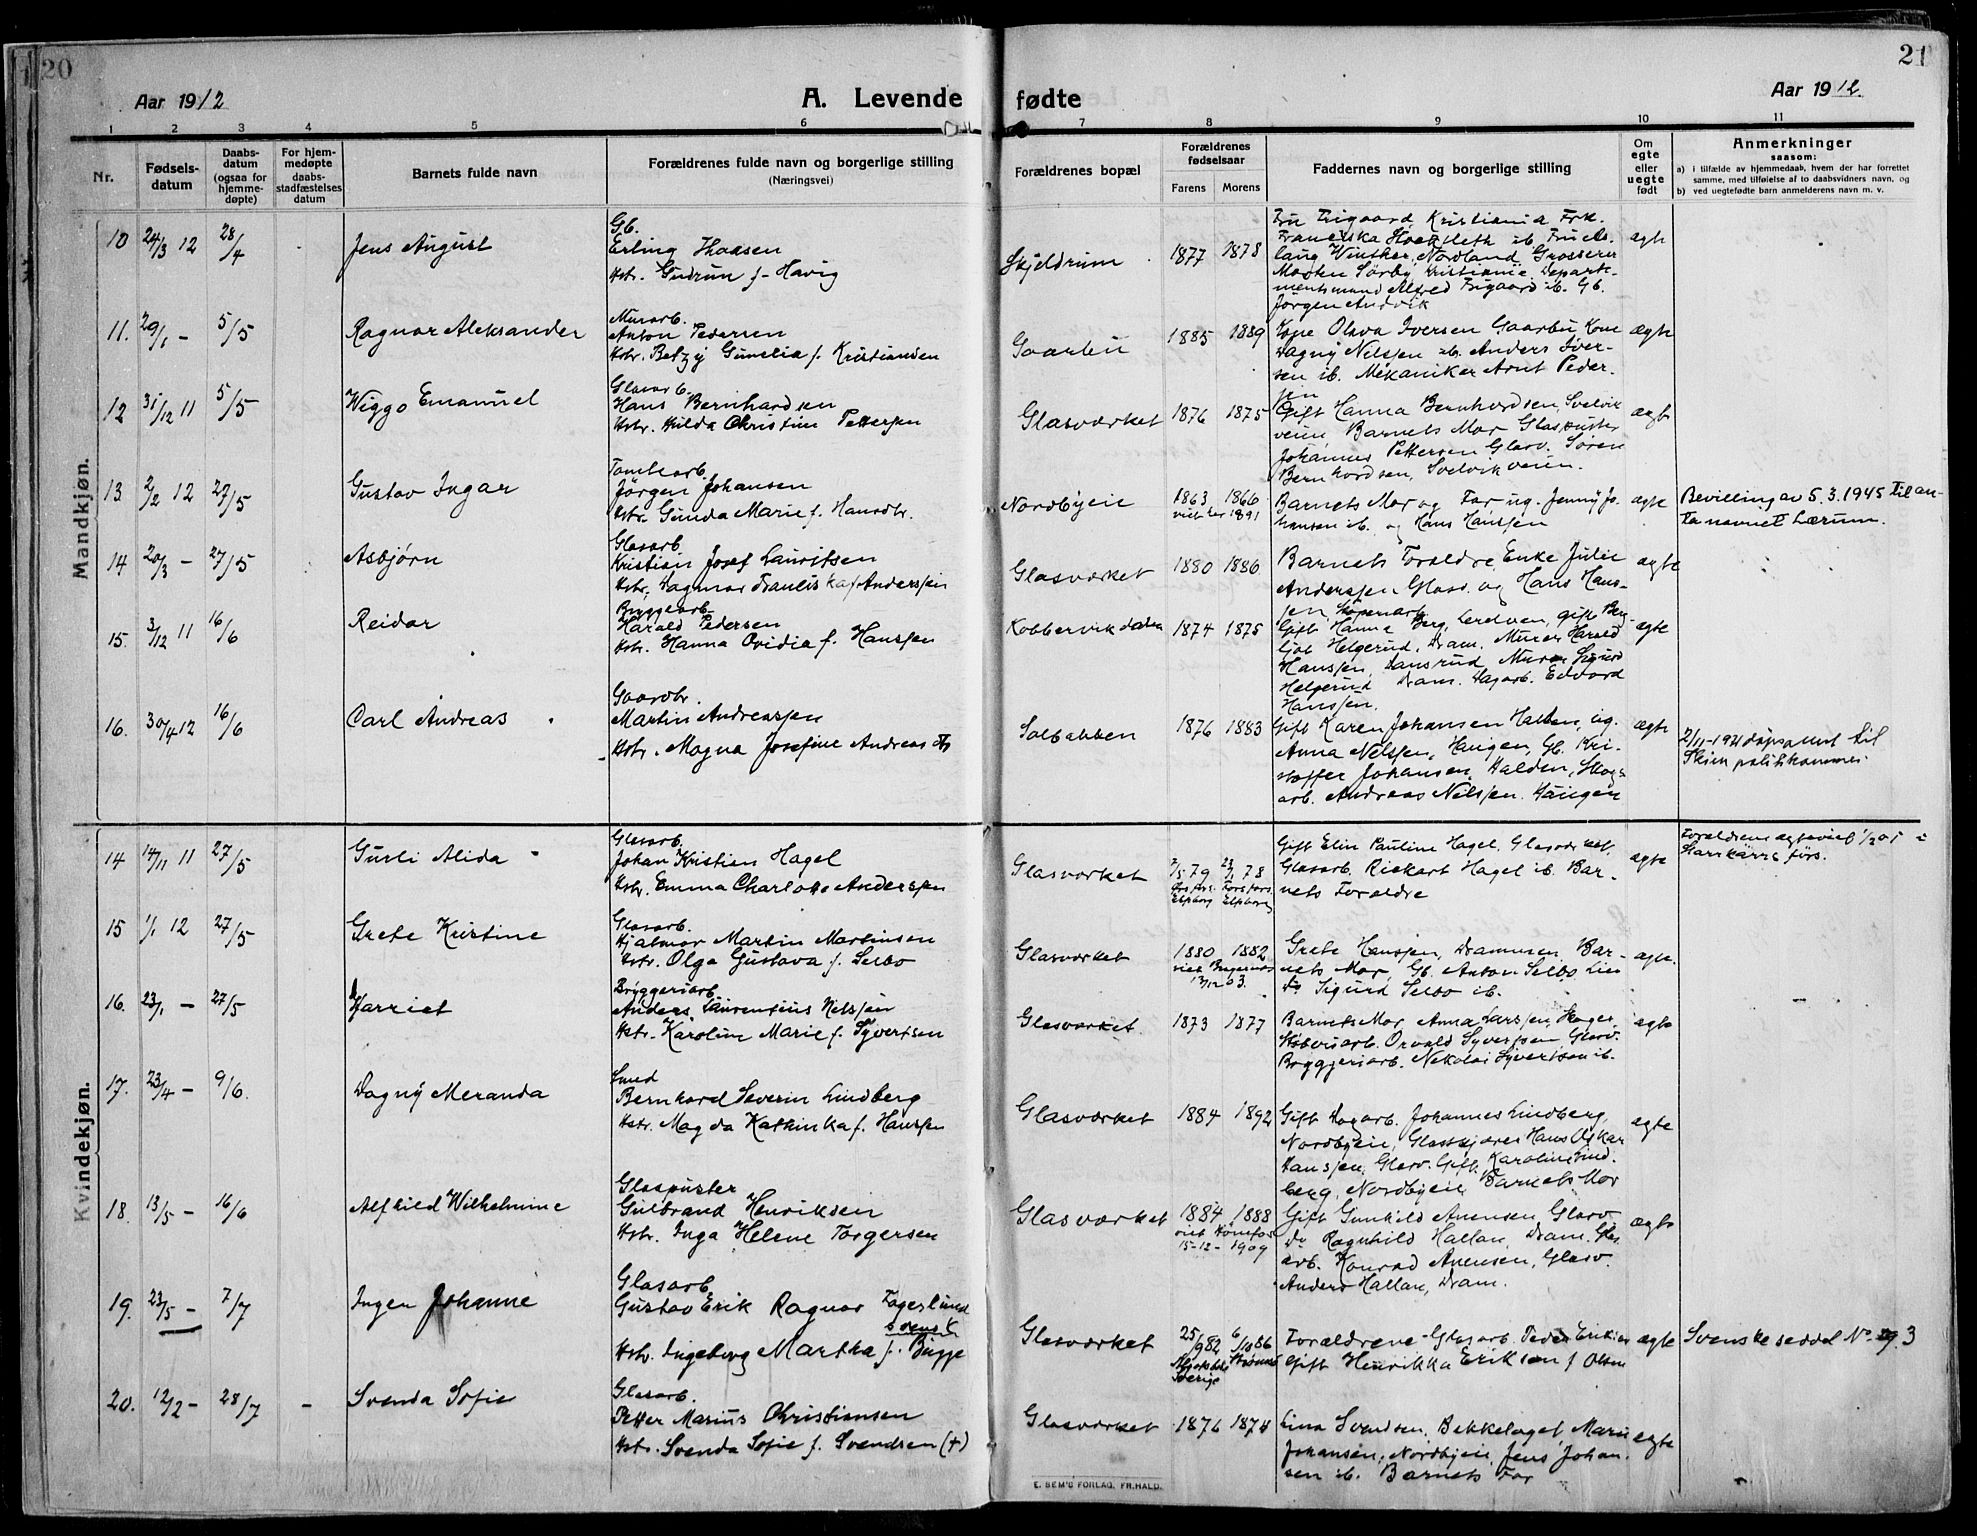 20
21
Aar 1912
A. Levende fødte
Aar 1912
1 2 3 4 5 6 7 8 9 10 11
Nr.
Fødsels-
datum
Daabs-
datum
(ogsaa for
hjemme-
døpte)
For hjem-
medøpte
daabs-
stadfæstelses
datum
Barnets fulde navn
Forældrenes fulde navn og borgerlige stilling
(Næringsvei)
Forældrenes bopæl
Forældrenes
fødselsaar
Farens Morens
Faddernes navn og borgerlige stilling
Om
egte
eller
uegte
født
Anmerkninger
saasom:
a) i tilfælde av hjemmedaab, hvem der har forrettet
samme, med tilføielse af to daabsvidners navn, og
b) ved uegtefødte barn anmelderens navn m. v.
Mandkjøn.
10 24/3 12 28/4 Jens August
Gb.
Erling Thaasen
Hstr. Gudrun f. Havig
Skjeldrum 1877 1878
Kristiania Frk.
Winther, Nordland Grosserer
Jørgen Andvik
ægte
11. 29/1 - 5/5 Ragnar Aleksander
Murarb.
Anton Pedersen
Hstr. Betzy Gunelia f. Kristiansen
Gaarbu 1885 1889
Kone Olava Iversen Gaarbu Kone
Dagny Nilssen ib. Anders Iver-
sen ib. Mekaniker Arnt Peder-
sen
ægte
12 31/12 11 5/5 Wiggo Emanuel
Glasarb.
Hans Bernhardsen
Hstr. Hilda Christine Pettersen
Glasværket 1876 1875
Gift Hanna Bernhardsen, Svelvik
veien Barnets Mor Glaspuster
Johannes Pettersen Glasv. Søren
Bernhardsen, Svelvikveien.
ægte
13 2/2 12 27/5 Gustav Ingar
Tomtearb.
Jörgen Johansen
Hstr. Gunda Marie f. Hansdtr.
Nordbyeie 1863 1866
1891
Barnets Mor og Far ug. Jenny Jo-
hansen ib. og Hans Hanssen
ægte
Bevilling av 5.3.1945 til an-
ta navnet Lærum.
14 20/3 - 27/5 Asbjørn
Glasarb.
Kristian Josef Lauritsen
Hstr. Dagmar Franciska f. Anderssen
Glasværket 1880 1886
Barnets Foreldre Enke Julie
Anderssen Glasv. og Hans Hans-
sen,
ægte
15. 3/12 11 16/6 Reidar
Bryggearb.
Harald Pedersen
Hstr. Hanna Ovidia f. Hanssen
Kobbervikdalen 1874 1875
Gift Hanna Berg, Lerdven, gift Berg-
ljot Helgerud, Dram. Murer Harald
Hanssen, Dansrud, Murer Sigurd
Helgerud Dram. Dagarb. Edvard
Hanssen.
ægte
16. 30/4 12 16/6 Carl Andreas
Gaardbr.
Martin Andreassen
Hstr. Magna Josefine Andreasdtr
Solbakken 1876 1883
Gift Karen Johansen Halden, ug.
Anna Nelssen, Haugen, Gb. Kri-
stoffer Johansen, Halden, Skogs-
arb. Andreas Nelssen. Haugen
ægte
2/11-1921 døpsattest til
Skien politikammer.
Kvindekjøn.
14 14/11 11 27/5 Gurli Alida
Glasarb.
Johan Kristian Hagel
Hstr. Emma Charlotte Anderssen
Glasværket 7/5 79 23/1 78
Gift Elin Pauline Hagel, Glasværket,
Glasarb. Rickart Hagel ib. Bar-
nets Foreldre
ægte
15 1/1 12 27/5 Grete Kristine
Glasarb.
Hjalmar Martin Martinsen
Hstr. Olga Gustava f. Selbo
Glasværket 1880 1882
Grete Hanssen, Drammen, Bar-
nets Mor, Gb. Anton Selbo Lier
Do Sigurd Selbo ib.
ægte.
16. 23/1 - 27/5 Harriet
Bryggeriarb.
Anders Laurentius Nelssen
Hstr. Karoline Marie f. Syvertsen
Glasværket. 1873 1877
Barnets Mor, Anna Larssen, Skoger,
Støberiarb. Osvald Syvertsen, Glasv.
Bryggeriarb. Nikolai Syvertsen ib.
ægte
17. 23/4 - 9/6. Dagny Meranda
Smed
Bernhard Severin Lindberg
Hstr. Magda Kathinka f. Hanssen
Glasværket 1884 1892
Gift Dagarb. Johannes Lindberg,
Nordbyeie, Glasskjærer Hans Oskar
Hanssen, Glasv. Gift Karoline Lind-
berg, Nordbyeie, Barnets Mor
ægte
18. 13/5 - 16/6 Alfhild Wilhelmine
Glaspuster
Gulbrand Henriksen
Hstr. Inga Helene Torgersen
Glasværket 1884 1888
viet Hønefos
15-12-1909
Gift Gunhild Anensen Glasv.
Do Ragnhild Hallan, Dram. Glas-
arb. Konrad Anensen, Glasv.
Anders Hallan, Dram.
ægte
19. 23/5 - 7/7 Inger Johanne
Glasarb.
Gustav Erik Ragnar Fagerlund
svensk
Hstr. Ingeborg Martha f. Bugge
Glasværket 25/9 82 6/10 86
Sverige
Foreldrene - Glasarb. Peder Eriksen
Gift Henrikka Eriksen f. Olsen
ægte
Svenske seddel No 3
20. 12/2 - 28/7 - Svenda Sofie
Glasarb.
Petter Marius Christiansen
Hstr. Svenda Sofie f. Svendsen (+)
Glasværket 1876 1874
Lina Svendsen, Bekkelaget, Marie
Johansen, Nordbyeie, Jens Johan-
sen ib. Barnets Far
ægte
E. SEM'S FORLAG, FR.HALD.